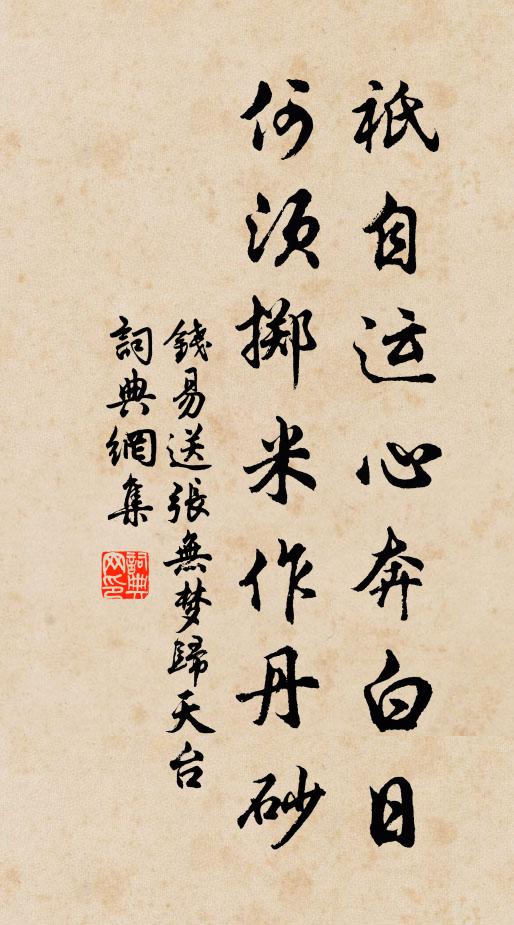 祇自运心奔白日
何须掷米作丹砂
錢易送張無梦歸天台
詞典網集
詞典網印